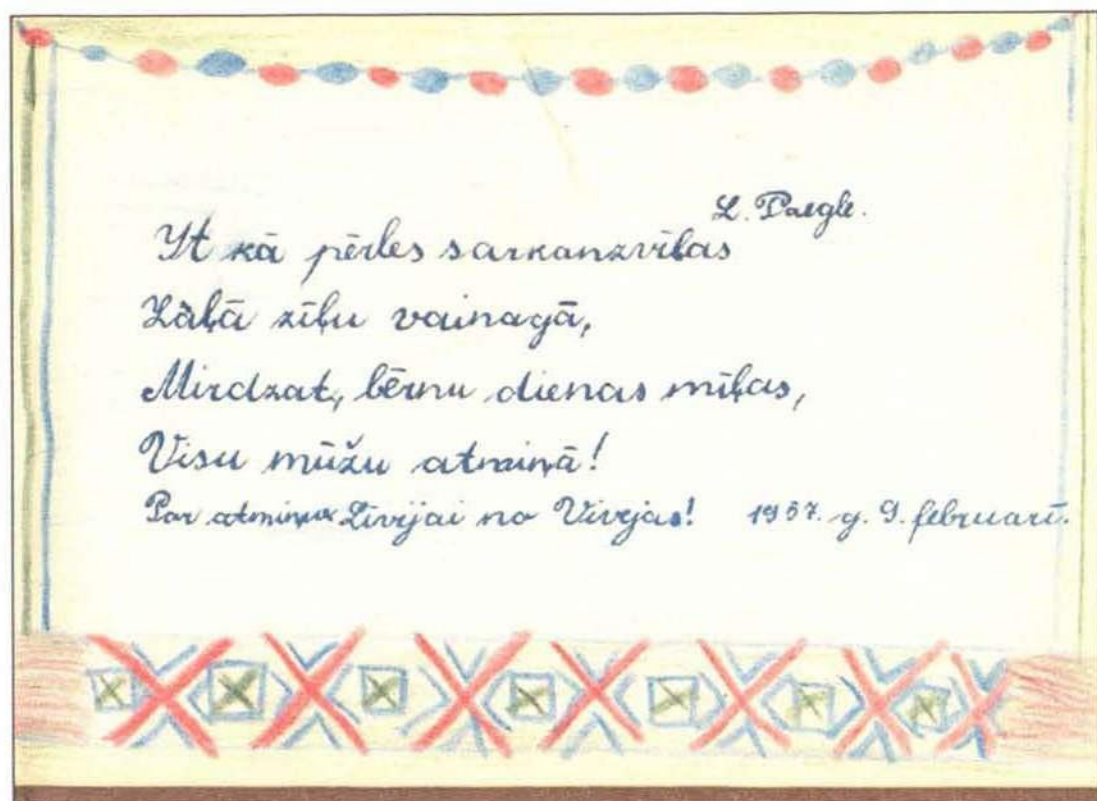 L. Paegle.
It kā pērles sarkanzvīļas
Zāļā zīļu vainagā,
Mirdzat, bērnu dienas mīļas,
Visu mūžu atmiņā!
Par atmiņu Līvijai no Vivejas! 1957. g. 9. februarī.